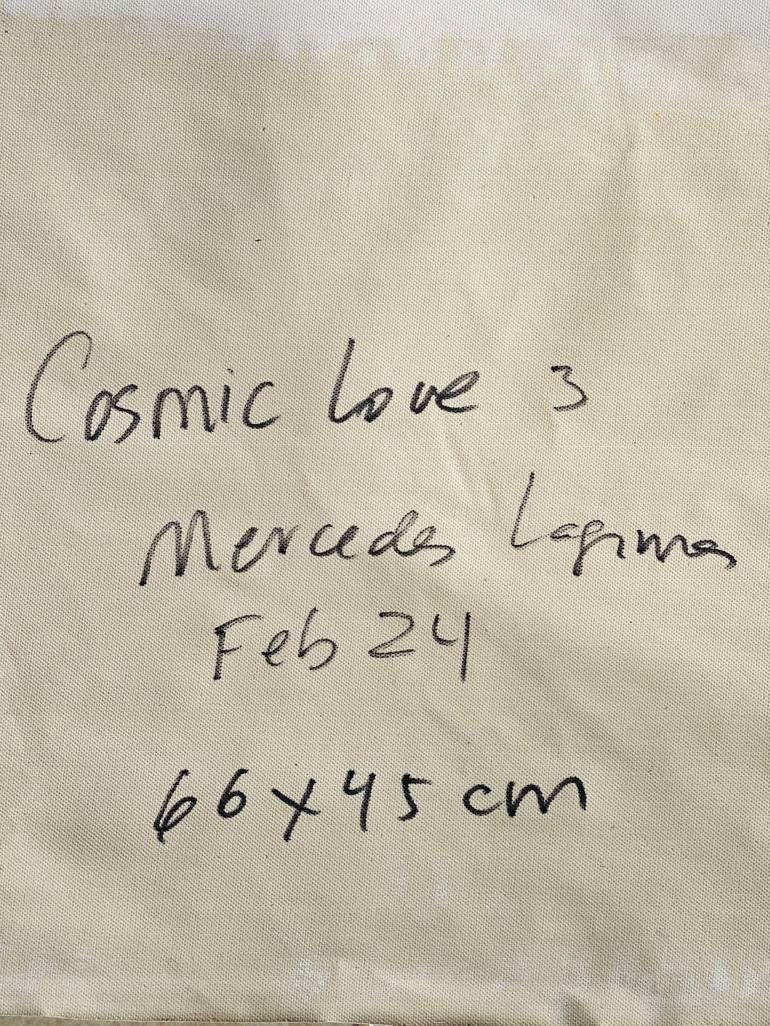 Cosmic Love 3
Mercedes
Feb 24
66x45 cm